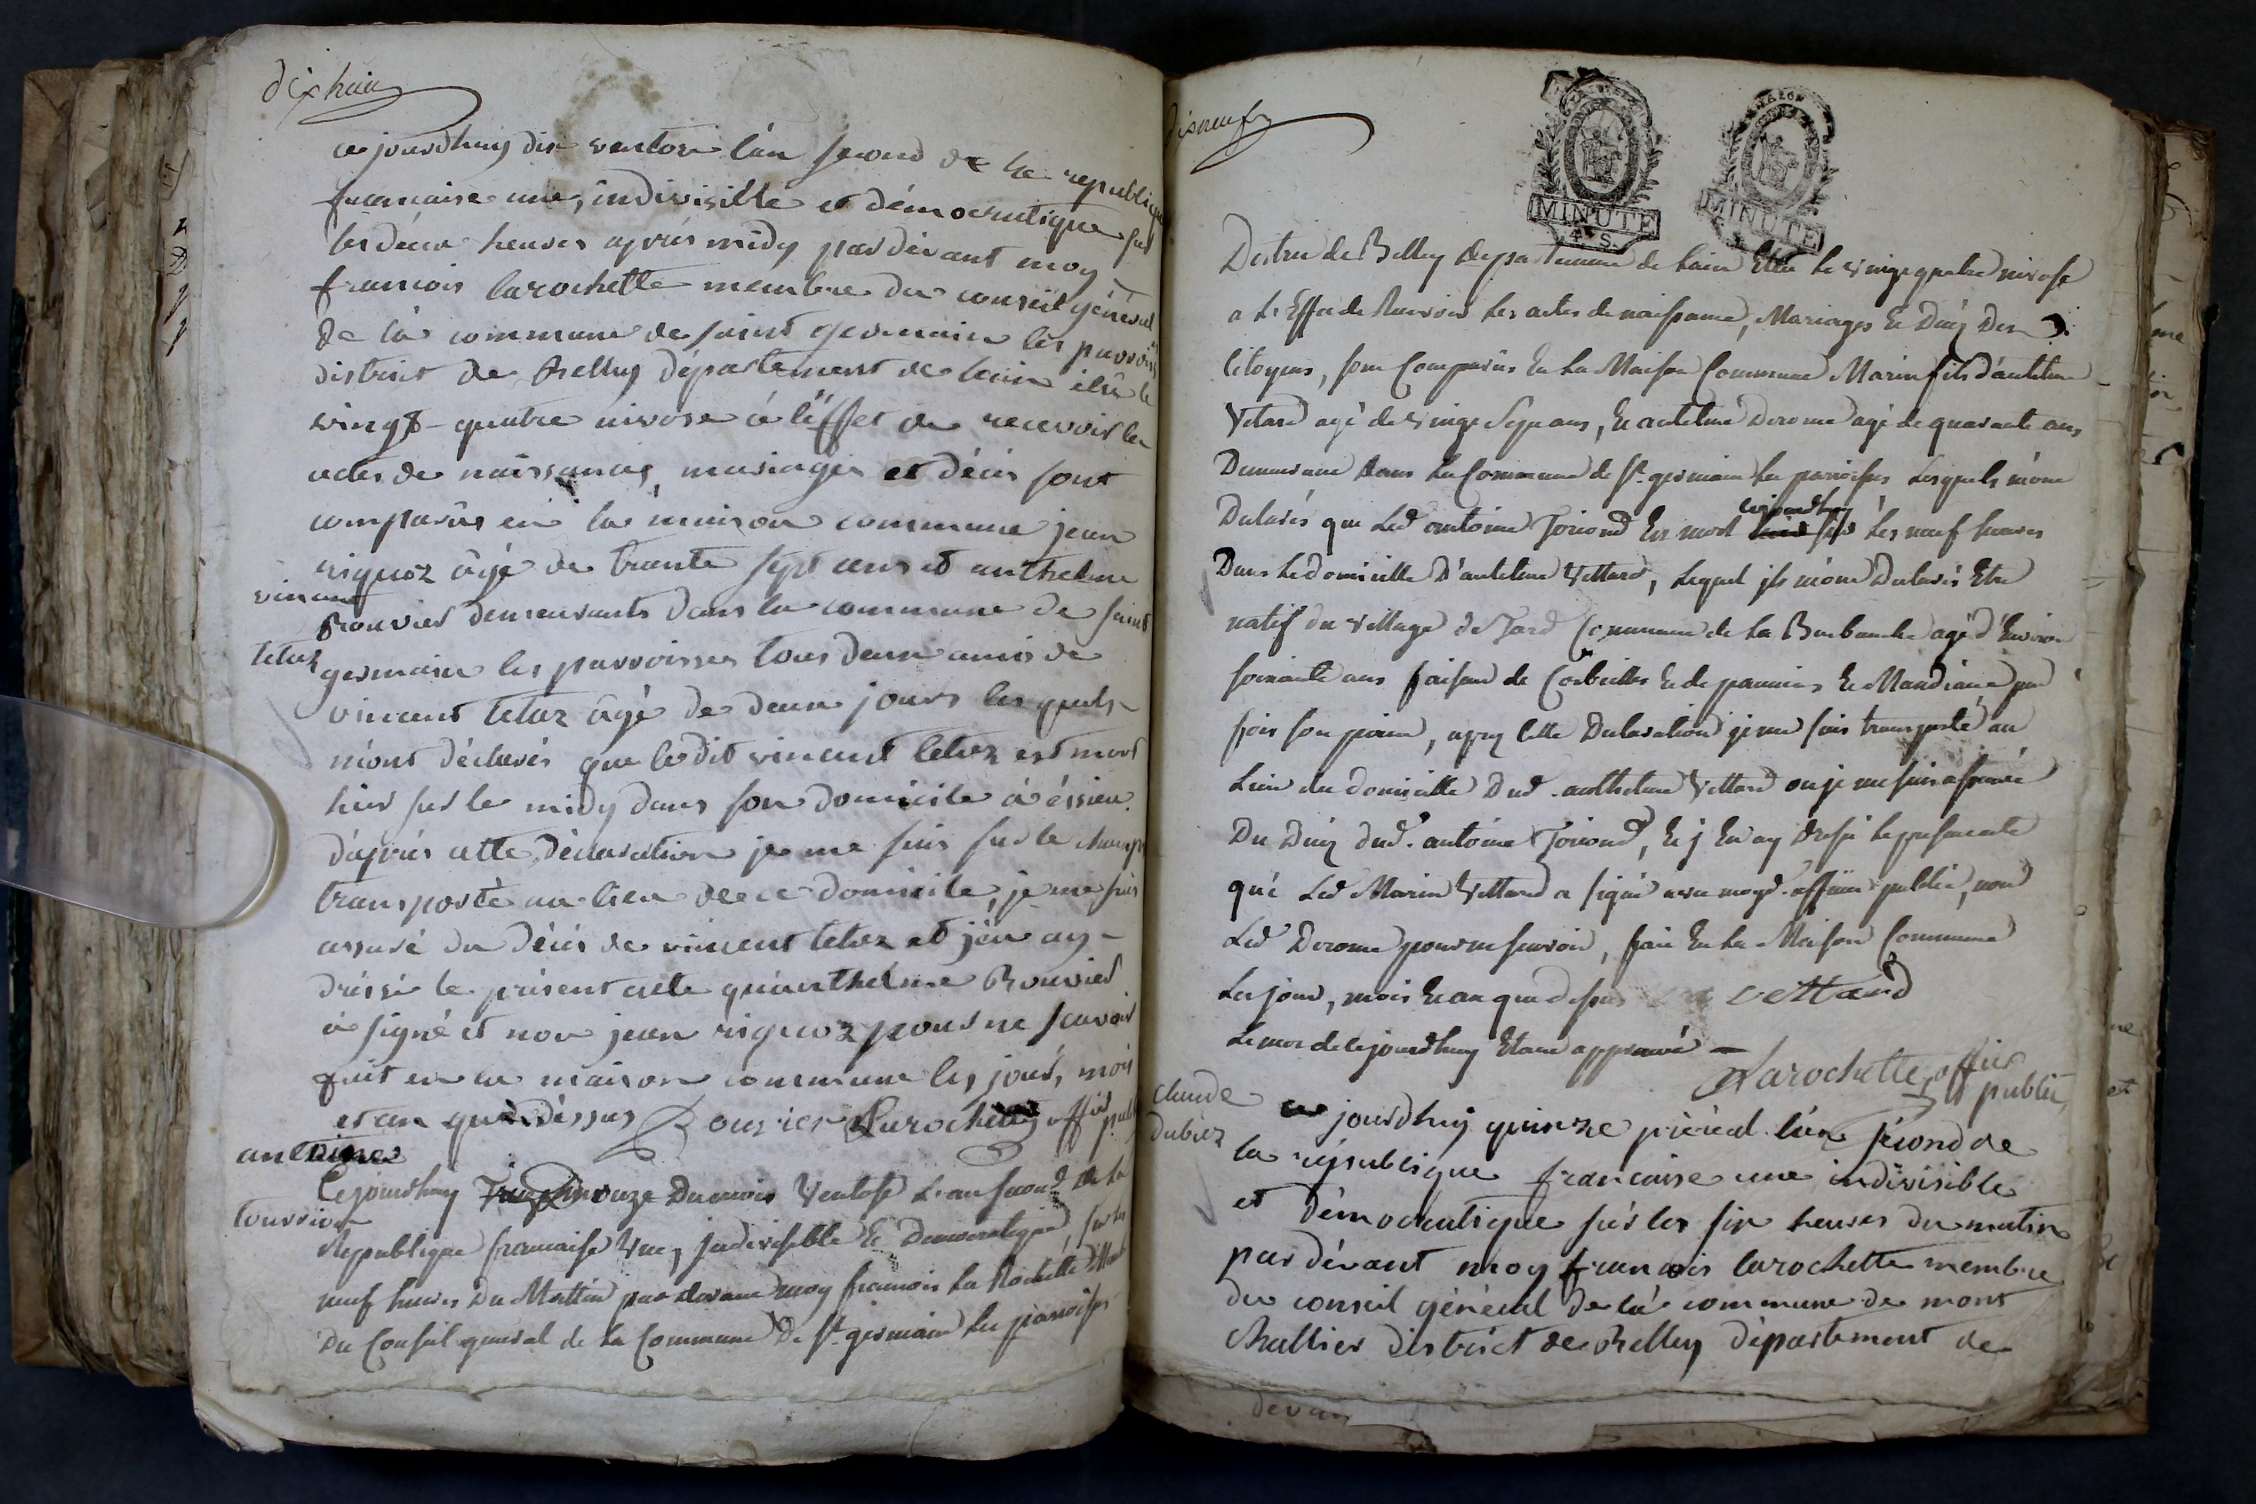 dix huit
ce jourdhuy dix ventose l'an second de la republique
francaise une, indivisible et démocratique sur
les deux heures aprés midy pardevant moy
francois larochette membre du conseil général
de la commune de saint germain les parroisses
district de Belley département de lain élu le
vingt-quatre nivose à l'effet de recevoir les
actes de naissances, mariages et décès sont
comparus en la maison commune jean
riquoz agé de trente sept ans et anthelme
vincent
Bouvier demeurants dans la commune de saint
tetaz
germain les parroisses tous deux amis de
vincent tetaz agé de deux jours lesquels
m'ont déclarés que ledit vincent tetaz est mort
hier sur le midy dans son domicile à éssieu
d'aprés cette déclaration je me suis sur le champ
transporté au lieu de ce domicile, je me suis
assuré du décès de vincent tetaz et j'en ay
dréssé le présent acte qu'anthelme Bouvier
a signé et non jean riquoz pour ne scavoir
fait en la maison commune les jour, mois
et an que déssus Bouvier Larochette offier public
antoine
Cejourdhuy onze Du mois Ventose L'an second de la
tourrion
Republique francaise Une, jndivisible Et Democratique, sur les
neuf heures Du Mattin par devant moy francois La Rochette Membre
Du Conseil general de La Commune De St germain Les paroisses
dixneuf
MINUTE
4 S.
MINUTE
District de Belley Departement de Lain Elu le vingt quatre nivose
a L'Effet de Recevoir Les actes de naissance, Mariages Et Deces Des
Citoyens, sont Comparus En La Maison Commune Marin fils d'antelme
Vetard agé de vingt Sept ans, Et antelme Derome agé de quarante ans
Demeurant dans La Commune de St germain Les paroisses Lesquels m'ont
cejourdhuy
Declarés que Led antoine Toriond Est mort sur Les neuf heures
Dans Le domicille D'antelme Vettard, Lequel jls m'ont Declarés Etre
natif du village de Commune de La Burbanche agé d'Environ
soixante ans faisant de Corbeilles Et de panniers Et Mandiant par
fois son pain, apres Cette Declaration je me suis transporté au
Lieu du domicille Dud. anthelme Vettard ou je me suis assuré
Du Deces dud. antoine Toriond, Et j En ay dressé Le present acte
que Led Marin Vettard a signé avec moyd. officier public, non
Led Derome pour ne scavoir, fait En La Maison Commune
Les jour, mois Et an que dessus vettard
Le mot de cejourdhuy Etant approuvé
Larochette offier
public
claude
dubiez
ce jourdhuy quinze préréal l'an second de
la république francaise une indivisible
et démocratique sur les six heures du matin
par dévant moy francois larochette membre
du conseil général de la commune de mont
Challier district de Belley département de
devan